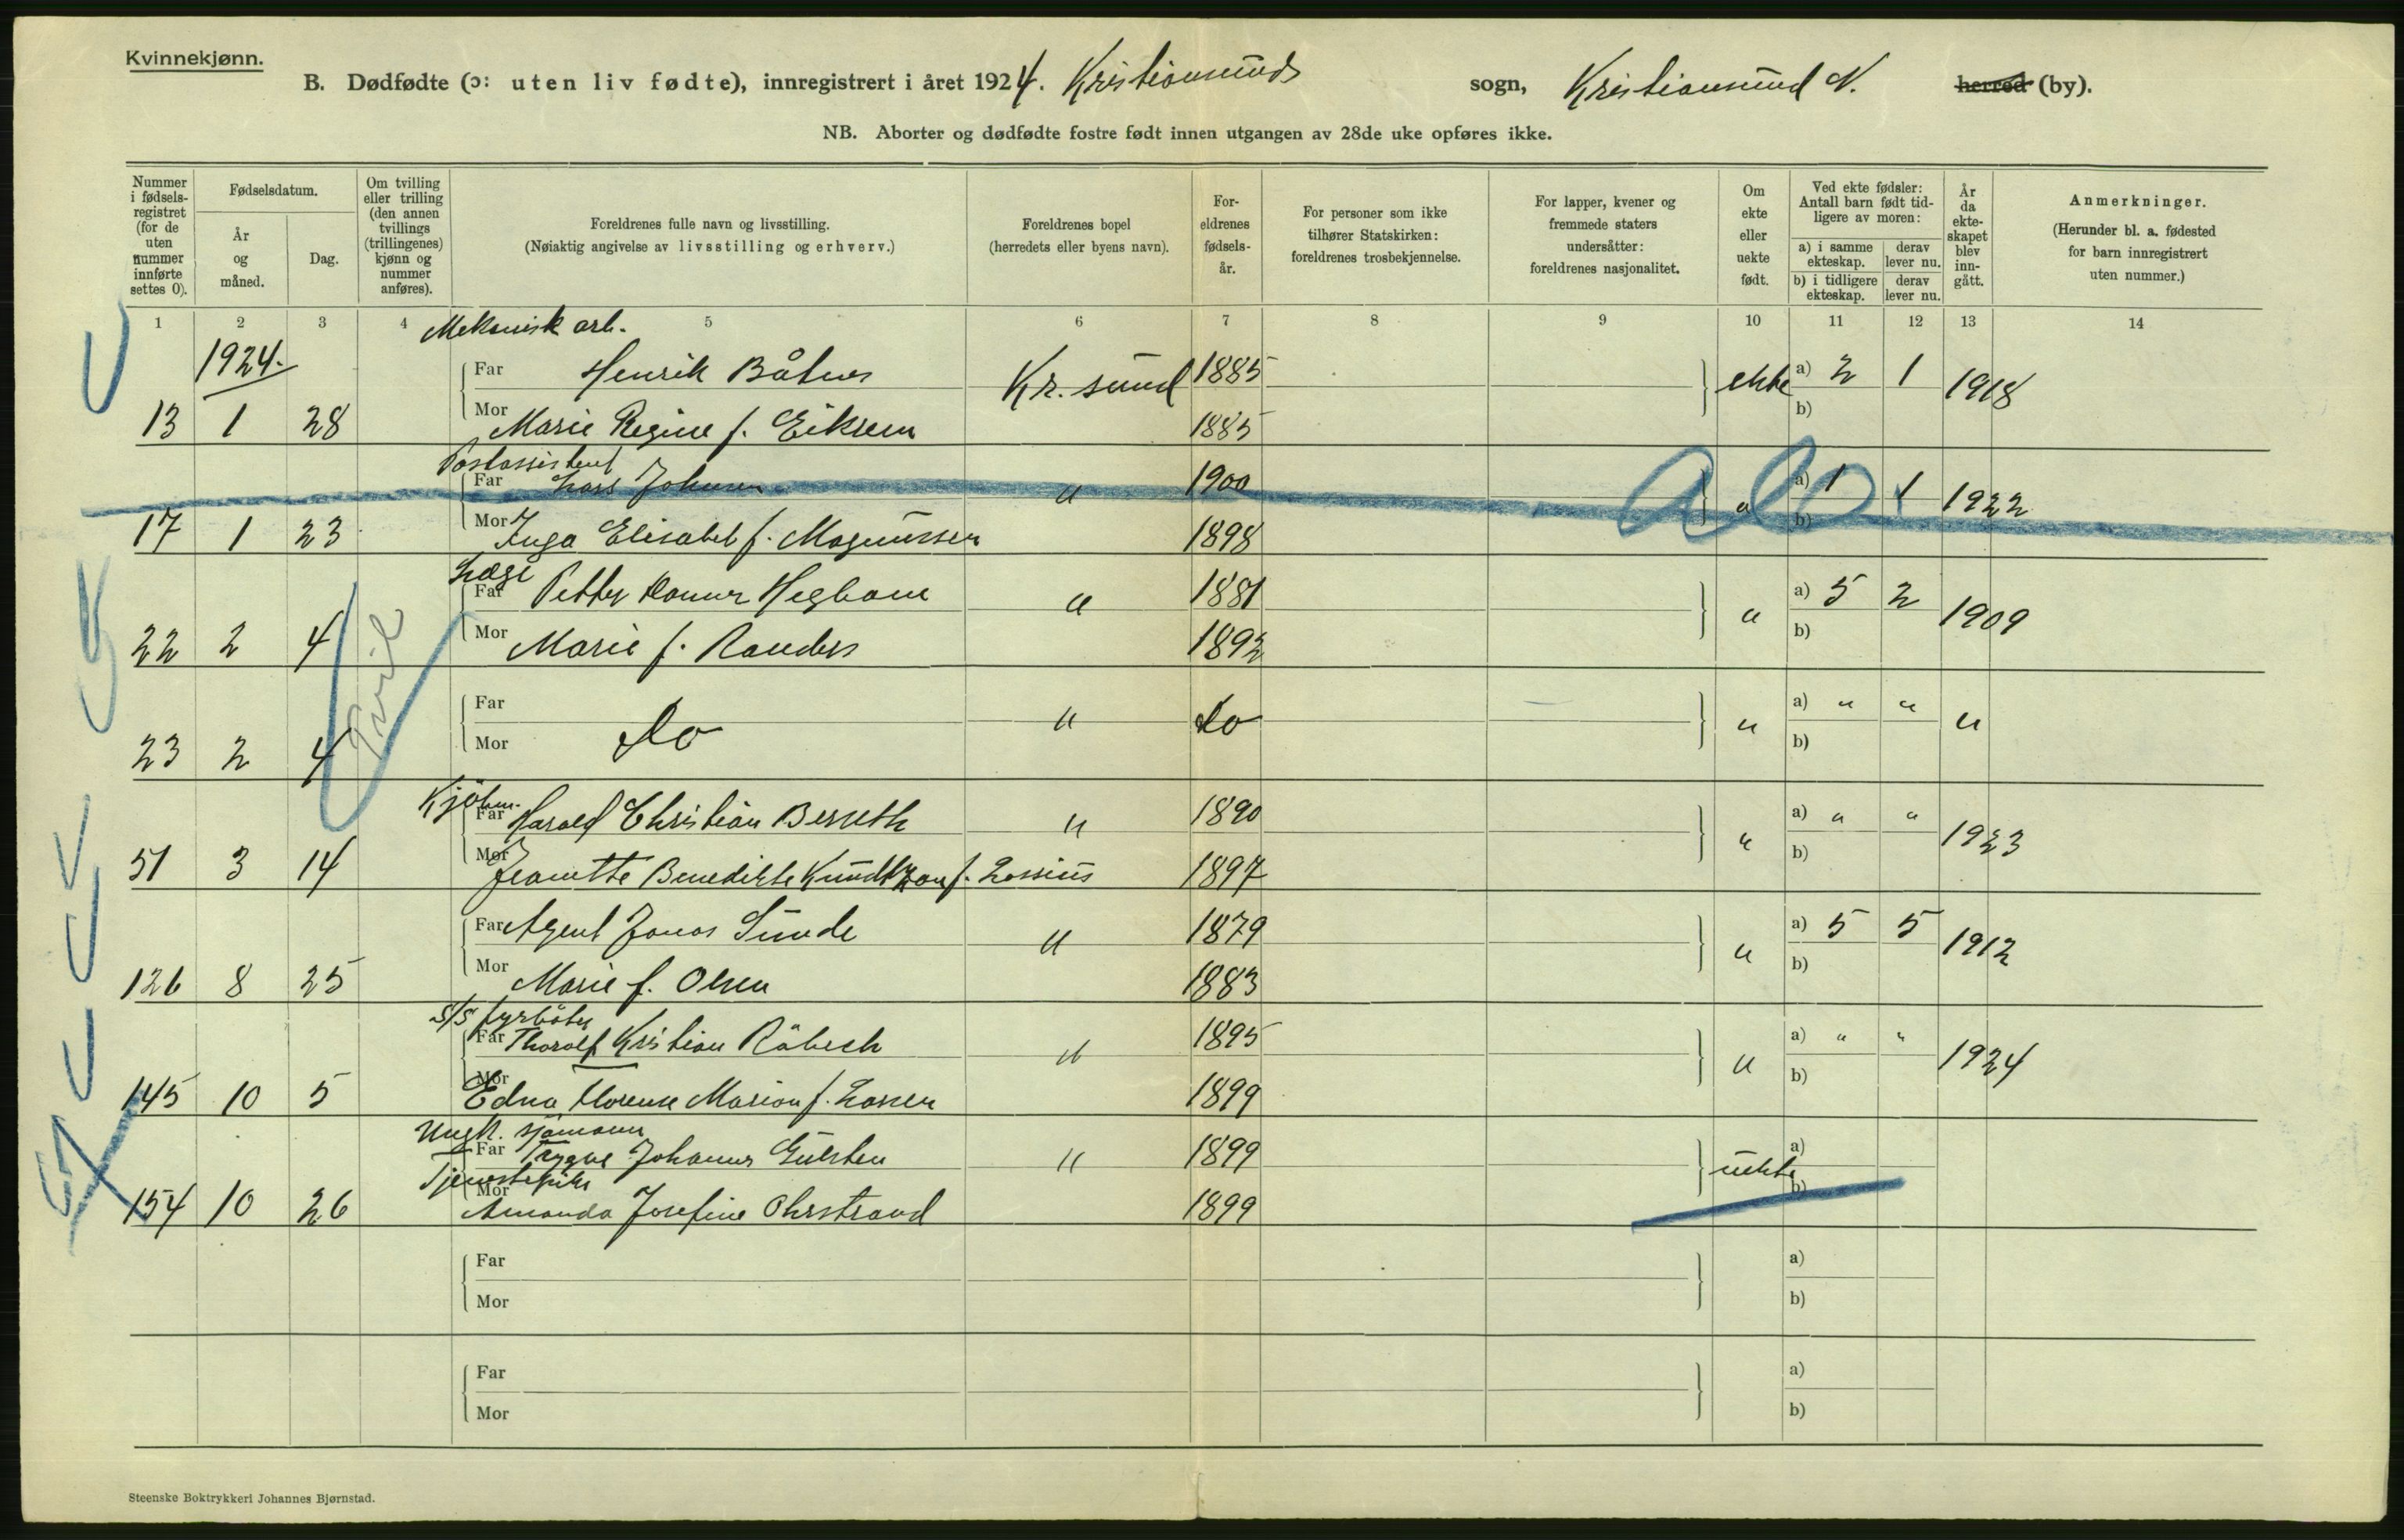 Kvinnekjønn.
B. Dødfødte (ɔ: uten liv fødte), innregistrert i året 1924. Kristiansunds sogn, Kristiansund N. herred (by).
NB. Aborter og dødfødte fostre født innen utgangen av 28de uke opføres ikke.
Nummer i fødsels-registret (for de uten nummer innførte settes 0).
Fødselsdatum.
År og måned.
Dag.
Om tvilling eller trilling (den annen tvillings (trillingenes) kjønn og nummer anføres).
Foreldrenes fulle navn og livsstilling.
(Nøiaktig angivelse av livsstilling og erhverv.)
Foreldrenes bopel
(herredets eller byens navn).
For-eldrenes fødsels-år.
For personer som ikke tilhører Statskirken: foreldrenes trosbekjennelse.
For lapper, kvener og fremmede staters undersåtter: foreldrenes nasjonalitet.
Om ekte eller uekte født.
Ved ekte fødsler: Antall barn født tid-ligere av moren:
a) i samme ekteskap.
derav lever nu.
b) i tidligere ekteskap.
derav lever nu.
År da ekte-skapet blev inn-gått.
Anmerkninger.
(Herunder bl. a. fødested for barn innregistrert uten nummer.)
1 2 3 4 5 6 7 8 9 10 11 12 13 14
Mekanisk arb.
1924.
Far Henrik Båtnes Kr. sund 1885 ekte a) 2 1 1918
13 1 28 Mor Marie Regine f. Eiksem 1885 b)
Postassistent
Far Lars Johnsen " 1900 " a) 1 1 1922
17 1 23 Mor Inga Elisabet f. Magnussen 1898 b)
Læge
Far Petter Hegbom " 1881 " a) 5 2 1909
22 2 4 Mor Marie f. Randers 1892 b)
Far Do " Do " a) " " "
23 2 4 Mor b)
Kjøbm.
Far Harald Christian Berseth " 1890 " a) " " 1923
51 3 14 Mor Jeanette Benedikte Knudtzon f. Lossius 1897 b)
Far Agent Jonas Sunde " 1879 " a) 5 5 1912
126 8 25 Mor Marie f. Olsen 1883 b)
S/S fyrbøter
Far Thoralf Kristian Råbech " 1895 " a) " " 1924
145 10 5 Mor Edna Florence Marion f. Larsen 1899 b)
Ungk. sjømann
Far Trygve Johannes Gulsten " 1899 uekte a)
Tjenestepike
154 10 26 Mor Amanda Josefine Ohrstrand 1899 b)
Far a)
Mor b)
Far a)
Mor b)
Steenske Boktrykkeri Johannes Bjørnstad.